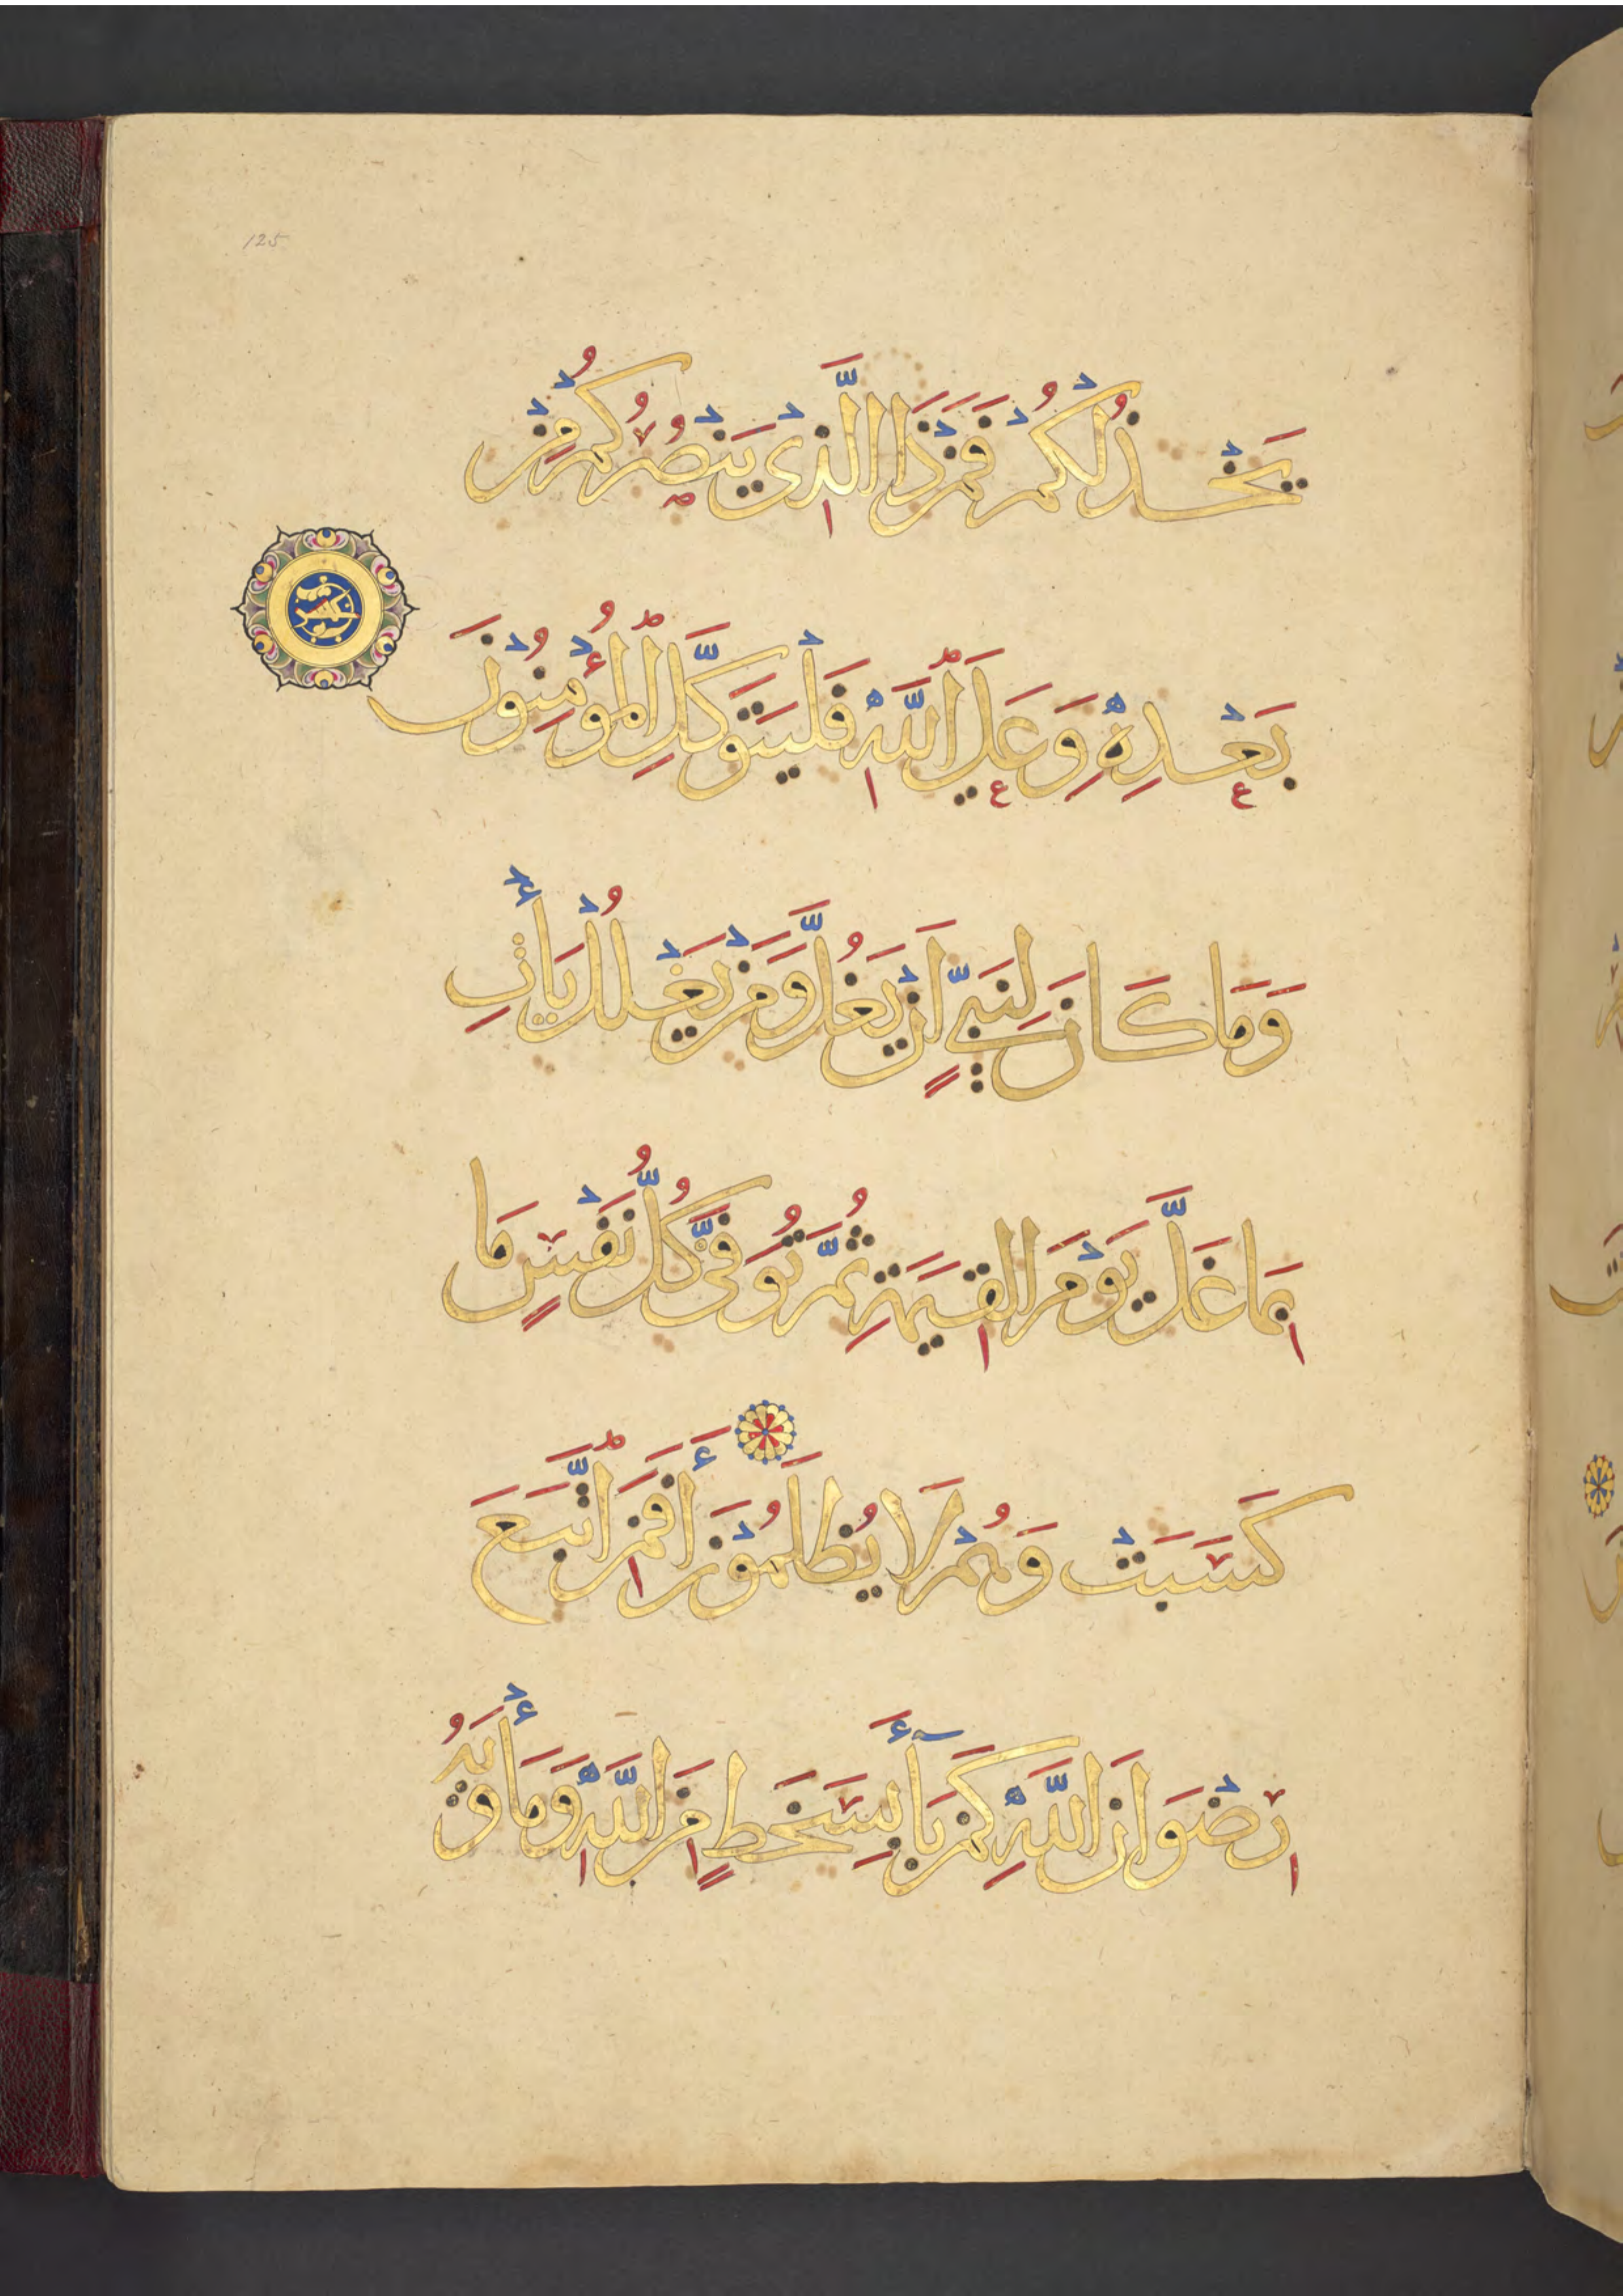 125
يَخْذُلْكُمْ فَمَنْ ذَا الَّذِي يَنْصُرُكُمْ مِنْ
بَعْدِهِ وَعَلَى اللَّهِ فَلْيَتَوَكَّلِ الْمُؤْمِنُونَ
وَمَا كَانَ لِنَبِيٍّ أَنْ يَغُلَّ وَمَنْ يَغْلُلْ يَأْتِ
بِمَا غَلَّ يَوْمَ الْقِيَمَةِ ثُمَّ تُوَفَّى كُلُّ نَفْسٍ مَا
كَسَبَتْ وَهُمْ لَا يُظْلَمُونَ أَفَمَنِ اتَّبَعَ
رِضْوَانَ اللَّهِ كَمَنْ بَاءَ بِسَخَطٍ مِنَ اللَّهِ وَمَأْوَيهُ